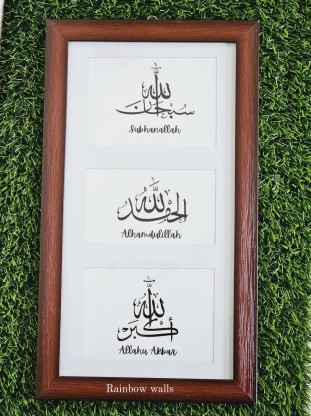 سبحان الله
Subhanallah
الحمد لله
Alhamdulillah
الله أكبر
Allahu Akbar
Rainbow walls